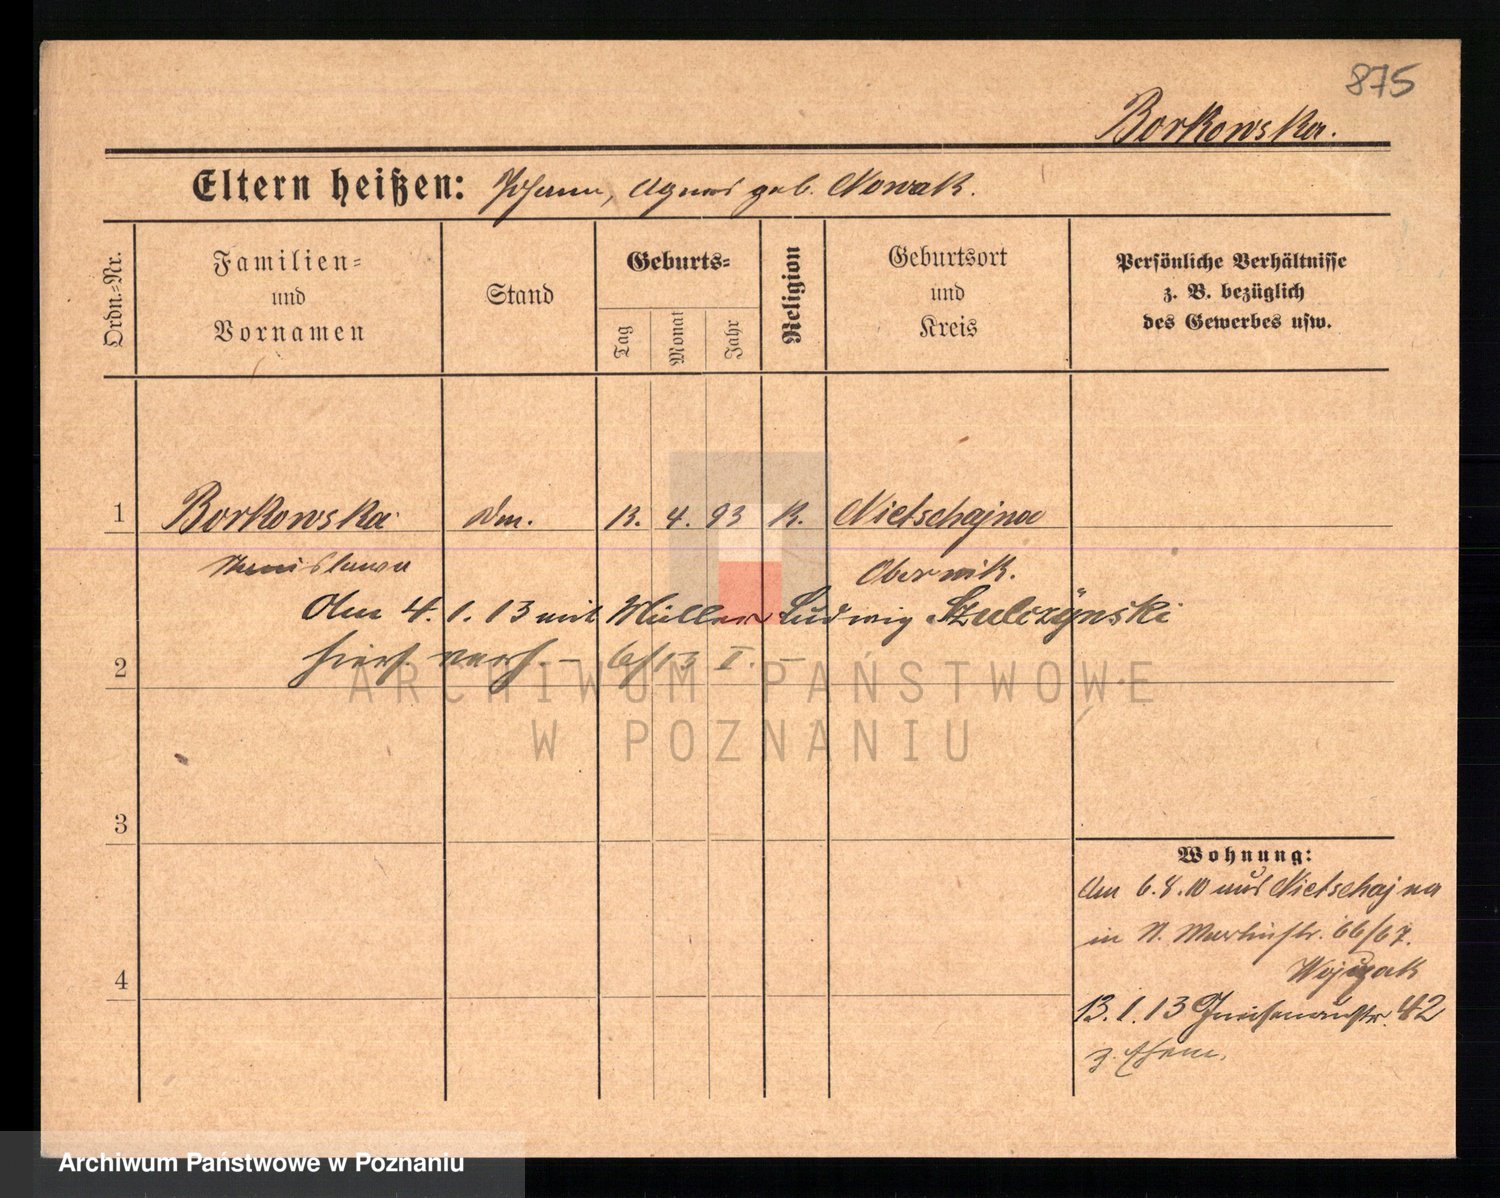 875
Borkowska.
Eltern heißen: Johann, Agnes geb. Nowak.
Ordn.-Nr.
Familien- und Vornamen
Stand
Geburts-
Tag
Monat
Jahr
Religion
Geburtsort und Kreis
Persönliche Verhältnisse
z. B. bezüglich
des Gewerbes usw.
1 Borkowska 13. 4. 93 K. Nietschajna
Stanislawa Obornik.
Am 4. 1. 13 mit Müller Ludwig Szulczynski
2 hier verh. – 6/13 I. –
3
4
Wohnung:
Am 6.8.10 aus Nietschajna
in St. Martinstr. 66/67.
13.1.13 Gneisenaustr. 42
z. Ehem.
ARCHIWUM PAŃSTWOWE
W POZNANIU
Archiwum Państwowe w Poznaniu